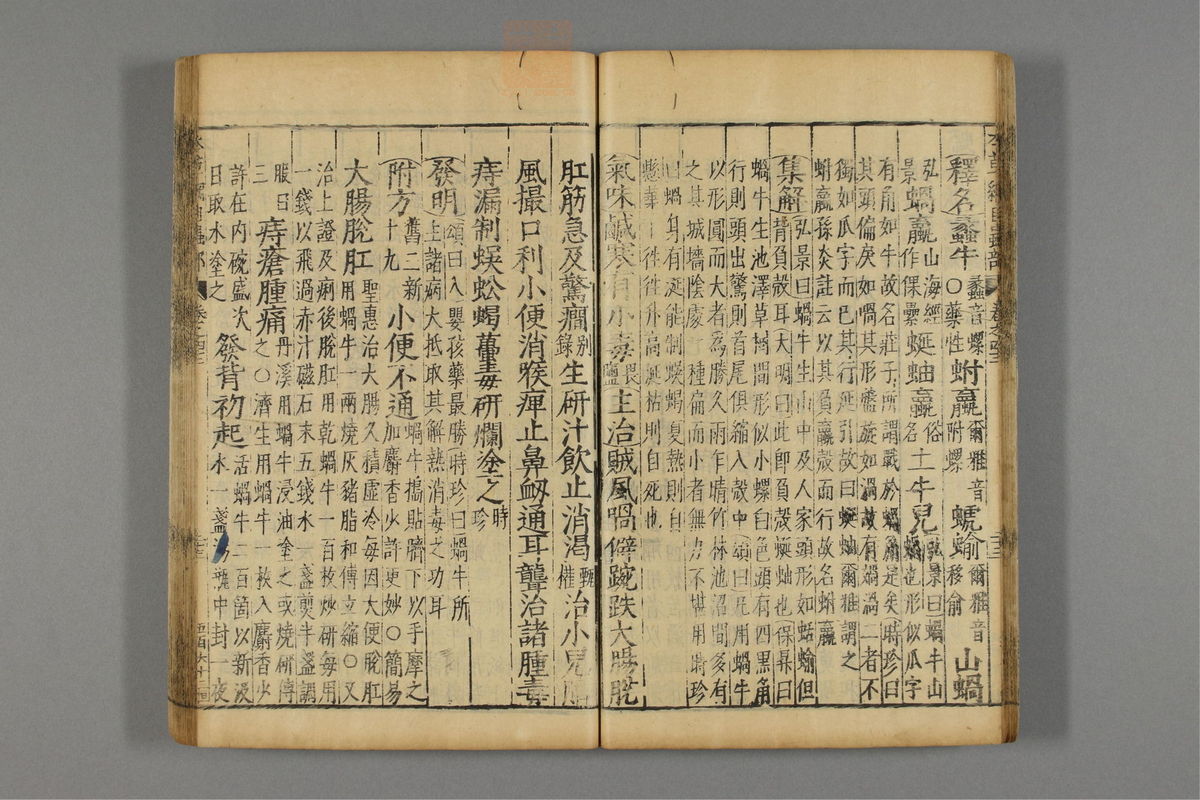 釋名蠡牛蠡音螺○藥性蚹蠃爾雅音附螺蚹蝓爾雅音移俞山蝸
弘景蝸蠃山海經作倮壘蜒蚰蠃俗名土牛兒弘景曰蝸牛山蝸也形似瓜字
有角如牛故名莊子所謂戰於蝸角是矣時珍曰
其頭偏戾如喎其形盤旋如渦故有媧渦二者不
獨如瓜字而已其行延引故曰蜒蚰爾雅謂之
蚹蠃孫炎註云以其負蠃殼而行故名蚹蠃
集解弘景曰蝸牛生山中及人家頭形如蛞蝓但
背負殼耳大明曰此即負殼蜒蚰也保昇曰
蝸牛生池澤草樹間形似小螺白色頭有四黑角
行則頭出驚則首尾俱縮入殼中頌曰凡用蝸牛
以形圓而大者爲勝久雨乍晴竹林池沼間多有
之其城墻陰處一種扁而小者無力不堪用時珍
曰蝸身有涎能制蜈蝎夏熱則自
懸葉下往往升高涎枯則自死也
氣味鹹寒有小毒畏鹽主治賊風喎僻踠跌大腸脫
肛筋急及驚癇别錄生研汁飲止消渴甄權治小兒臍
風撮口利小便消喉痺止鼻衄通耳聾治諸腫毒
痔漏制蜈蚣蝎蠆毒研爛塗之時珍
發明頌曰入嬰孩藥最勝時珍曰蝸牛所
主諸病大抵取其解熱消毒之功耳
附方舊二新十九小便不通蝸牛搗貼臍下以手摩之
加麝香少許更妙○簡易
大腸脫肛聖惠治大腸久積虛冷每因大便脫肛
用蝸牛一兩燒灰豬脂和傅立縮○又
治上證及痢後脫肛用乾蝸牛一百枚炒研每用
一錢以飛過赤汁磁石末五錢水一盞煎半盞調
服日三痔瘡腫痛丹溪用蝸牛浸油塗之或燒研傅
之○濟生用蝸牛一枚入麝香少
許在內碗盛次
日取水塗之發背初起活蝸牛二百箇以新汲
水一盞湯瓶中封一夜